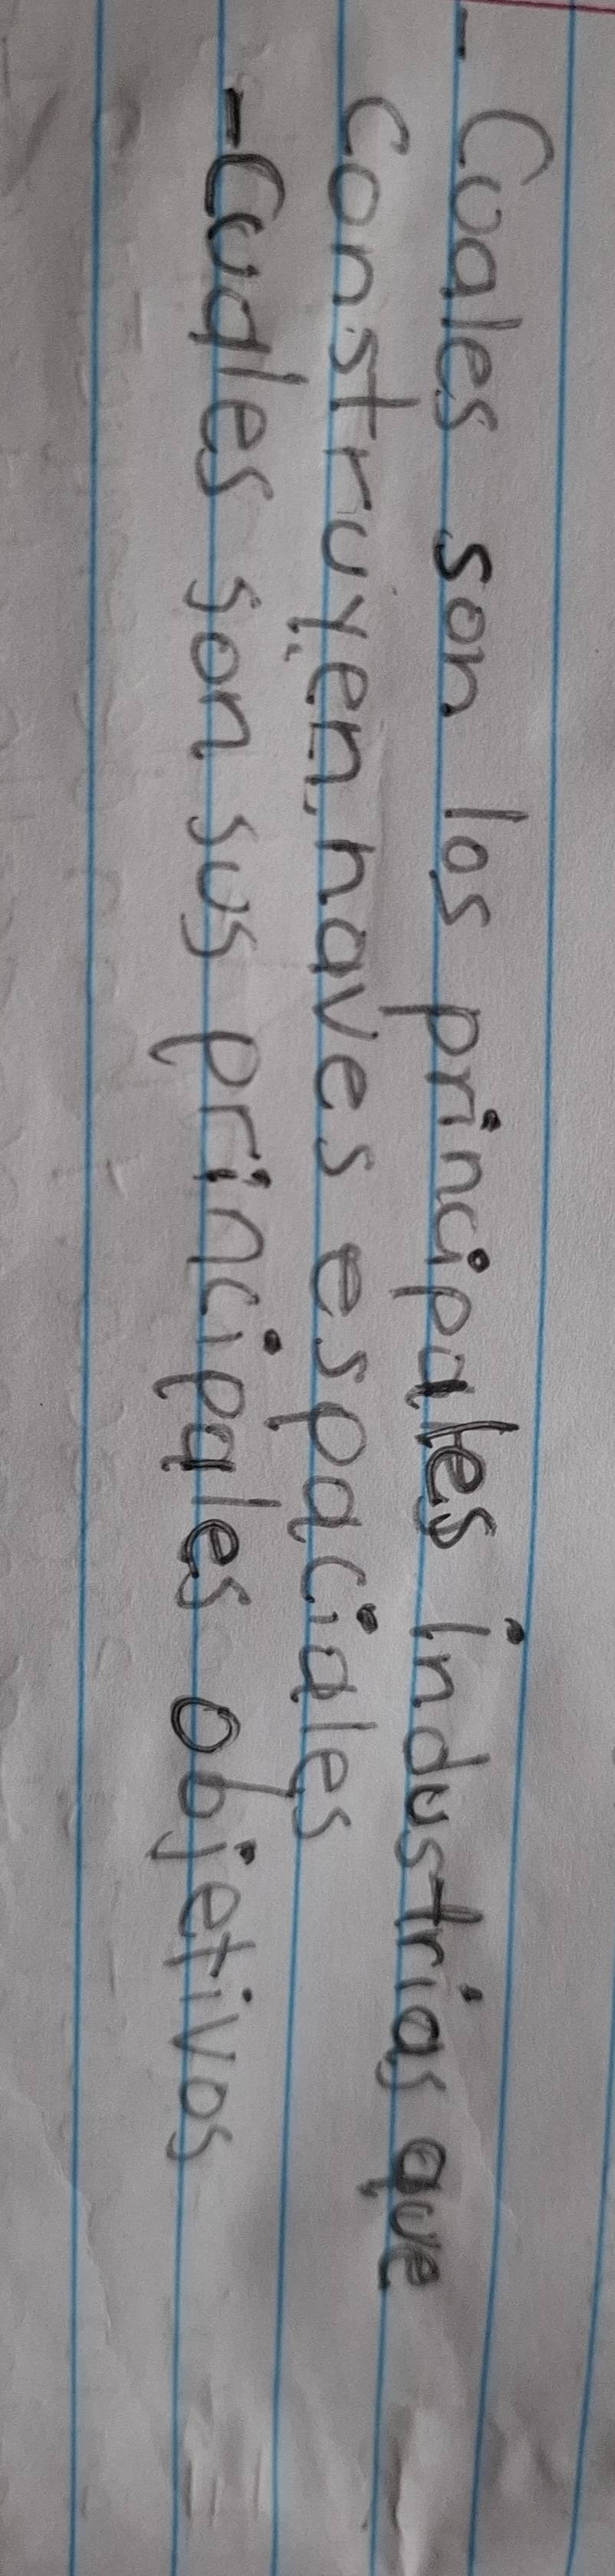 - Cuales son los principales industrias que
construyen haves espaciales
- Cuales son sus principales objetivos